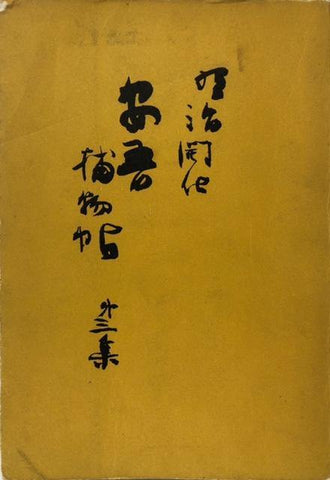 明治開化
安吾
捕物帖
第三集